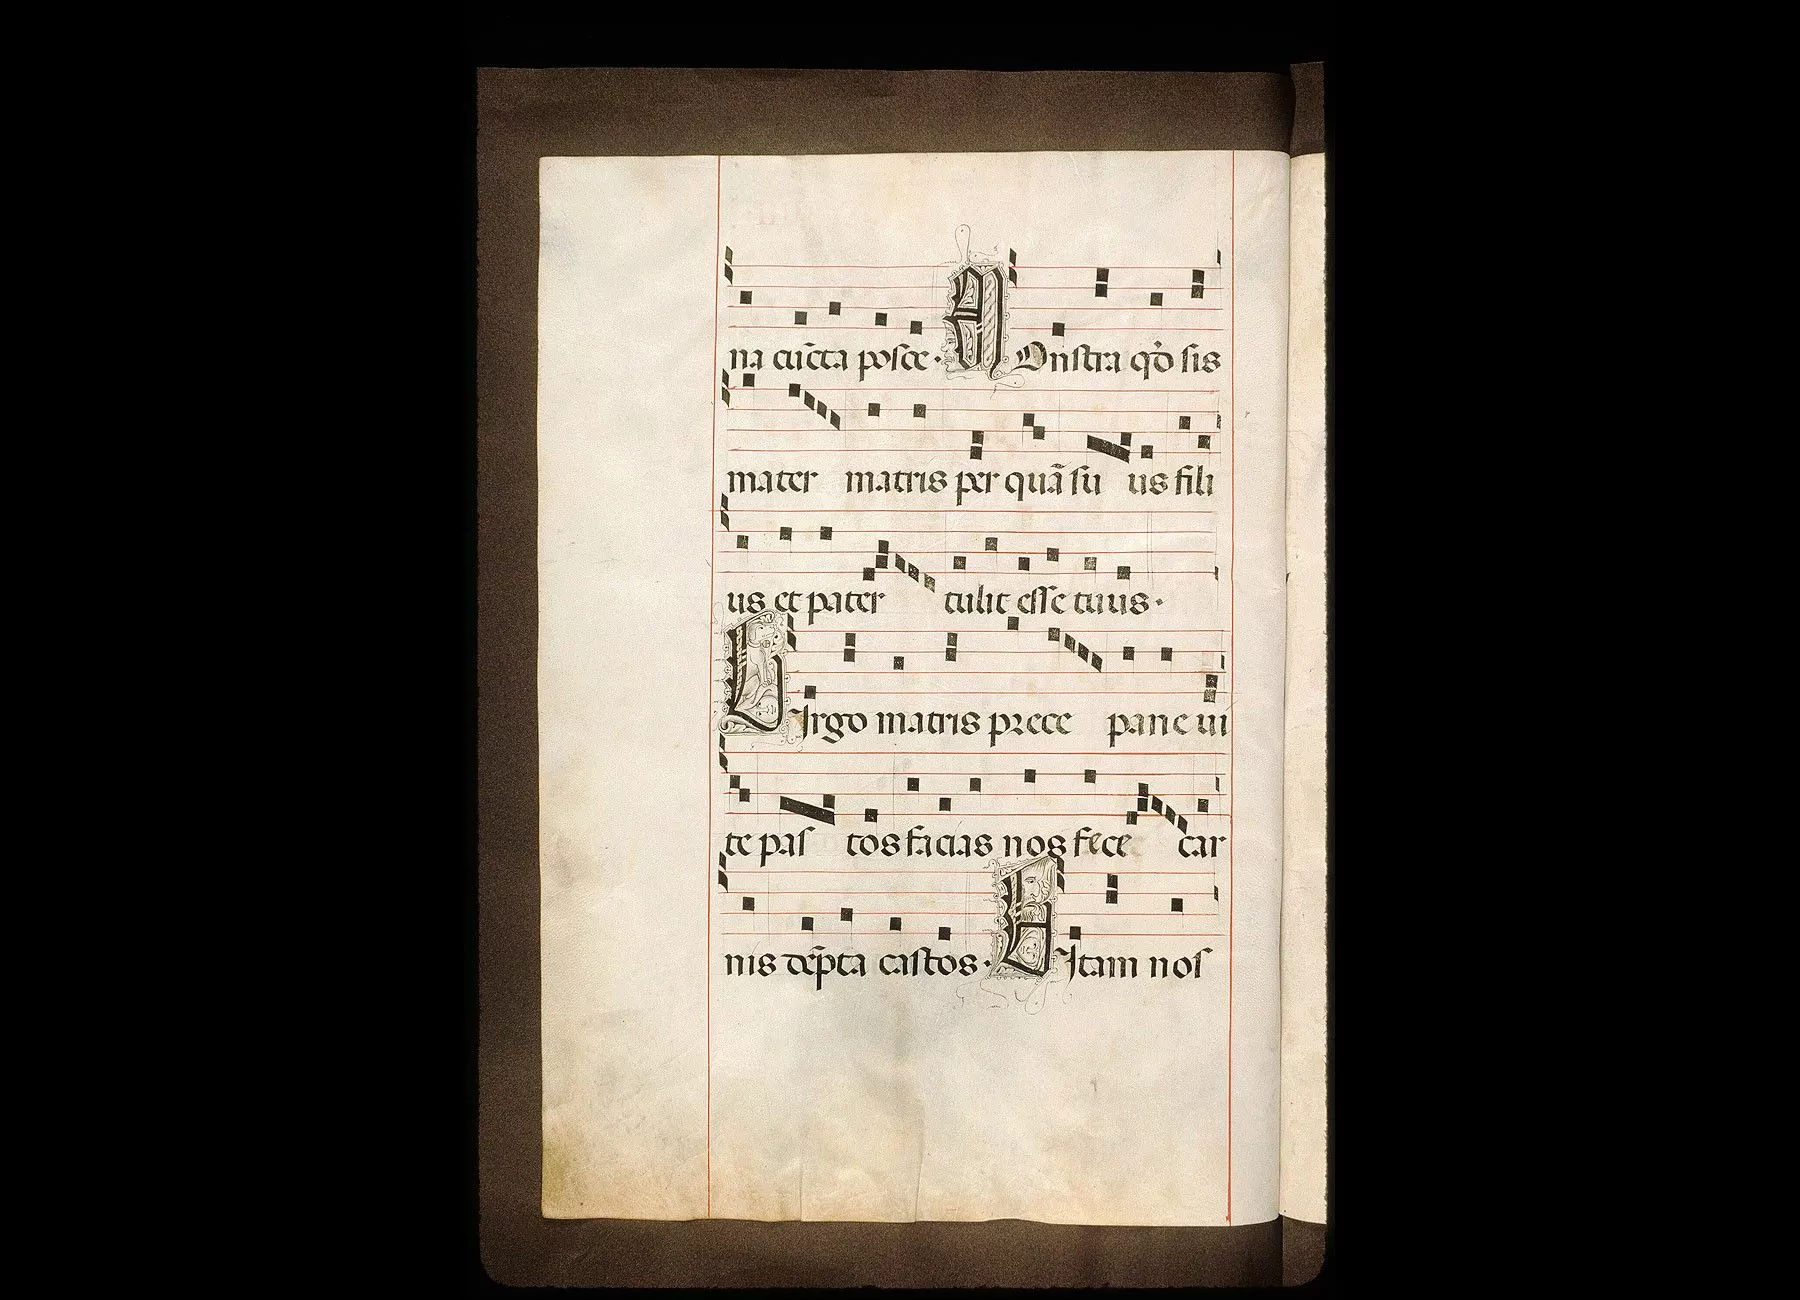 na cūcta posce · MOnstra qđ sis
mater matris per quā su us fili
us et pater tulit esse tuus ·
VIrgo matris prece pane ui
te pas tos facias nos fece car
nis dēpta castos · VItam nos